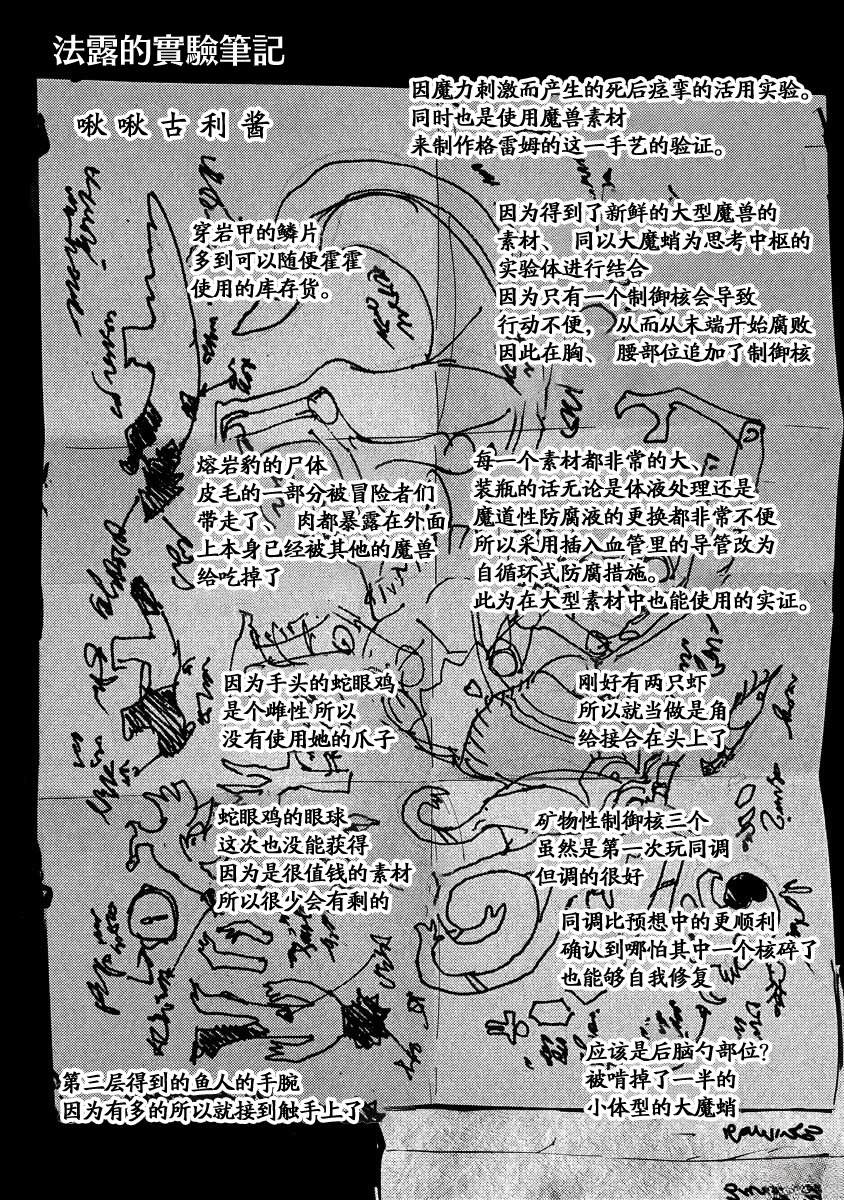 法露的實驗筆記
啾啾古利酱
因魔力刺激而产生的死后痉挛的活用实验。
同时也是使用魔兽素材
来制作格雷姆的这一手艺的验证。
穿岩甲的鳞片
多到可以随便霍霍
使用的库存货。
因为得到了新鲜的大型魔兽的
素材、 同以大魔蛸为思考中枢的
实验体进行结合
因为只有一个制御核会导致
行动不便， 从而从末端开始腐败
因此在胸、 腰部位追加了制御核
熔岩豹的尸体
皮毛的一部分被冒险者们
带走了、 肉都暴露在外面
上本身已经被其他的魔兽
给吃掉了
每一个素材都非常的大、
装瓶的话无论是体液处理还是
魔道性防腐液的更换都非常不便
所以采用插入血管里的导管改为
自循环式防腐措施。
此为在大型素材中也能使用的实证。
因为手头的蛇眼鸡
是个雌性所以
没有使用她的爪子
刚好有两只虾
所以就当做是角
给接合在头上了
蛇眼鸡的眼球
这次也没能获得
因为是很值钱的素材
所以很少会有剩的
矿物性制御核三个
虽然是第一次玩同调
但调的很好
同调比预想中的更顺利
确认到哪怕其中一个核碎了
也能够自我修复
第三层得到的鱼人的手腕
因为有多的所以就接到触手上了
应该是后脑勺部位？
被啃掉了一半的
小体型的大魔蛸